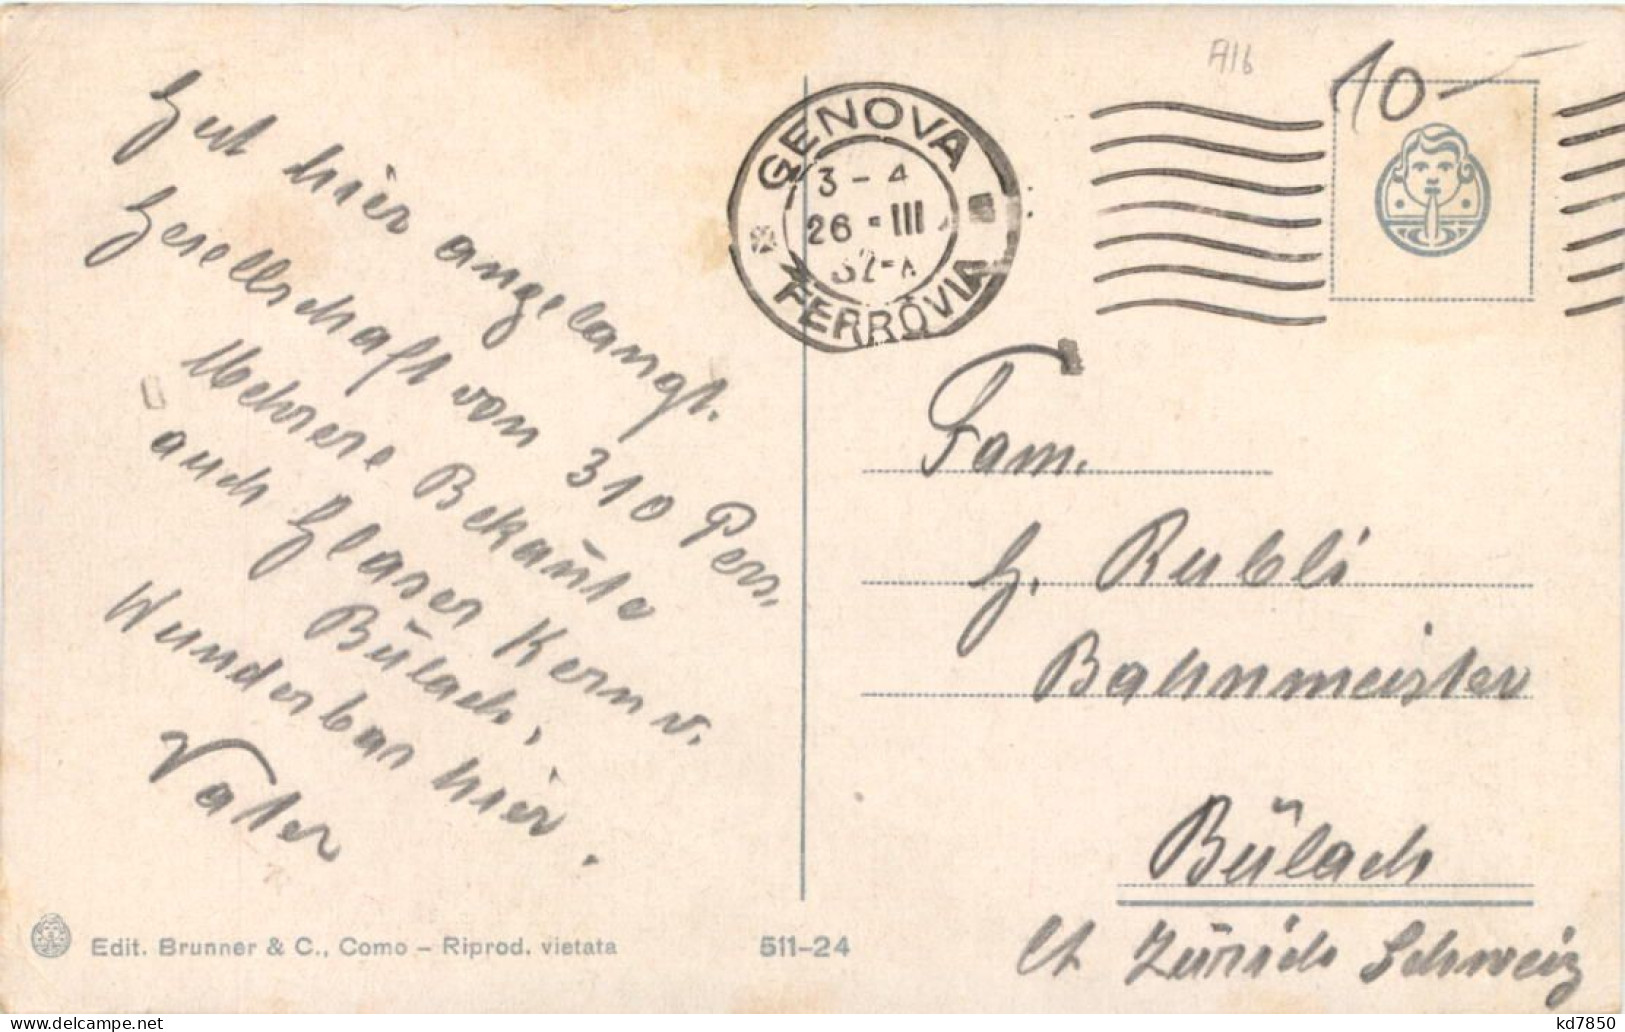 Gut hier angelangt.
Gesellschaft von 310 Pers.
Mehrere Bekañte
auch Glaser Kern v.
Bülach.
Wunderbar hier.
Vater
Edit. Brunner & C., Como – Riprod. vietata
511-24
GENOVA
3 - 4
26 - III
32-X
FERROVIA
A16
10-
Fam.
H. Rubli
Bahnmeister
Bülach
Ct Zürich Schweiz
kd7850